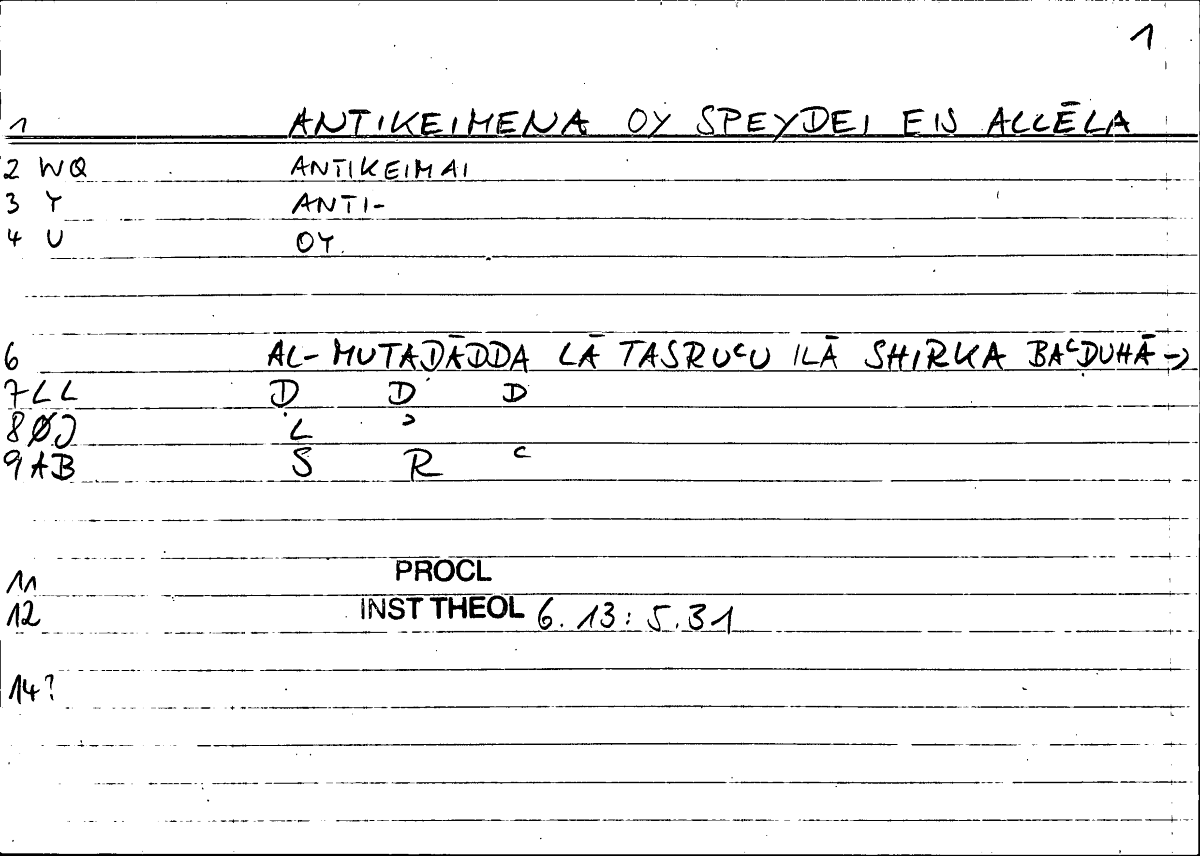 1
1 ANTIKEIMENA OY SPEYDEI EIS ALLĒLA
2 WQ ANTIKEIMAI
3 Y ANTI-
4 U OY
6 AL-MUTAḌĀDDA LĀ TASRUʿU ILĀ SHIRKA BAʿḌUHĀ→
7 LL Ḍ D D
8 ØJ L ʾ
9 AB S R ʿ
11 PROCL
12 INST THEOL 6.13:5.31
14?